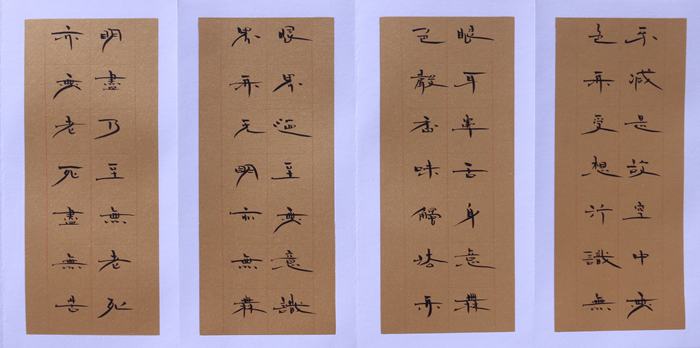 不減是故空中無
色無受想行識無
眼耳鼻舌身意無
色聲香味觸法無
眼界迺至無意識
界無无明亦無無
明盡乃至無老死
亦無老死盡無苦